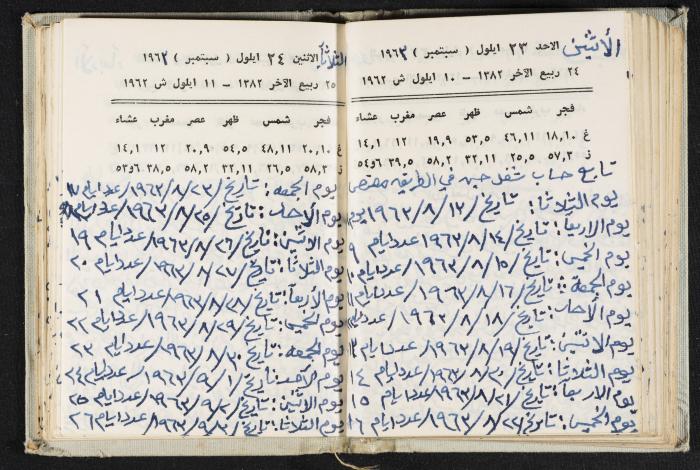 الأثنين
الاحد ٢٣ ايلول ( سبتمبر ) ١٩٦٣
٢٤ ربيع الآخر ١٣٨٢ - ١٠ ايلول ش ١٩٦٢
فجر شمس ظهر عصر مغرب عشاء
غ ١٨,١٠ ٤٦,١١ ٥٣,٥ ١٩,٩ ١٢ ١٤,١
ز ٥٧,٣ ٢٥,٥ ٣٢,١١ ٥٨,٢ ٣٩,٥ ٥٤و٦
تابع حساب شغل في الطريقه
يوم الثلاثا: تاريخ/١٣/٨/١٩٦٣
يوم الاربعآ: تاريخ/١٤/٨/١٩٦٣ عدد ايام ٩
يوم الخميس: تاريخ/١٥/٨/١٩٦٣ عدد ايام
يوم الجمعة: تاريخ/١٦/٨/١٩٦٣ عدد ايام
يوم الأحد: تاريخ/١٨/٨/١٩٦٣ عدد ايام
يوم الاثنين: تاريخ/١٩/٨/١٩٦٣ عدد ايام
يوم الثلاثا: تاريخ/٢٠/٨/١٩٦٣ عدد ايام ١٤
يوم الاربعآ: تاريخ/٢١/٨/١٩٦٣ عدد ايام ١٥
يوم الخميس: تاريخ/٢٢/٨/١٩٦٣ عدد ايام ١٦
الثلاثآ
الاثنين ٢٤ ايلول ( سبتمبر ) ١٩٦٣
٢٥ ربيع الآخر ١٣٨٢ - ١١ ايلول ش ١٩٦٢
فجر شمس ظهر عصر مغرب عشاء
غ ٢٠,١٠ ٤٨,١١ ٥٤,٥ ٢٠,٩ ١٢ ١٤,١
ز ٥٨,٣ ٢٦,٥ ٣٢,١١ ٥٨,٢ ٣٨,٥ ٥٣و٦
يوم الجمعه: تاريخ/٢٣/٨/١٩٦٣ عدد ايام ١٧
يوم الأحد: تاريخ/٢٥/٨/١٩٦٣ عدد ايام
يوم الاثنين: تاريخ/٢٦/٨/١٩٦٣ عدد ايام ١٩
يوم الثلاثا: تاريخ/٢٧/٨/١٩٦٣ عدد ايام ٢٠
يوم الأربعآ: تاريخ/٢٨/٨/١٩٦٣ عدد ايام ٢١
يوم الخميس: تاريخ/٢٩/٨/١٩٦٣ عدد ايام ٢٢
يوم الجمعه: تاريخ/٣٠/٨/١٩٦٣ عدد ايام ٢٣
يوم الأحد: تاريخ/١/٩/١٩٦٣ عدد ايام ٢٤
يوم الاثنين: تاريخ/٢/٩/١٩٦٣ عدد ايام ٢٥
يوم الثلاثا: تاريخ/٣/٩/١٩٦٣ عدد ايام ٢٦